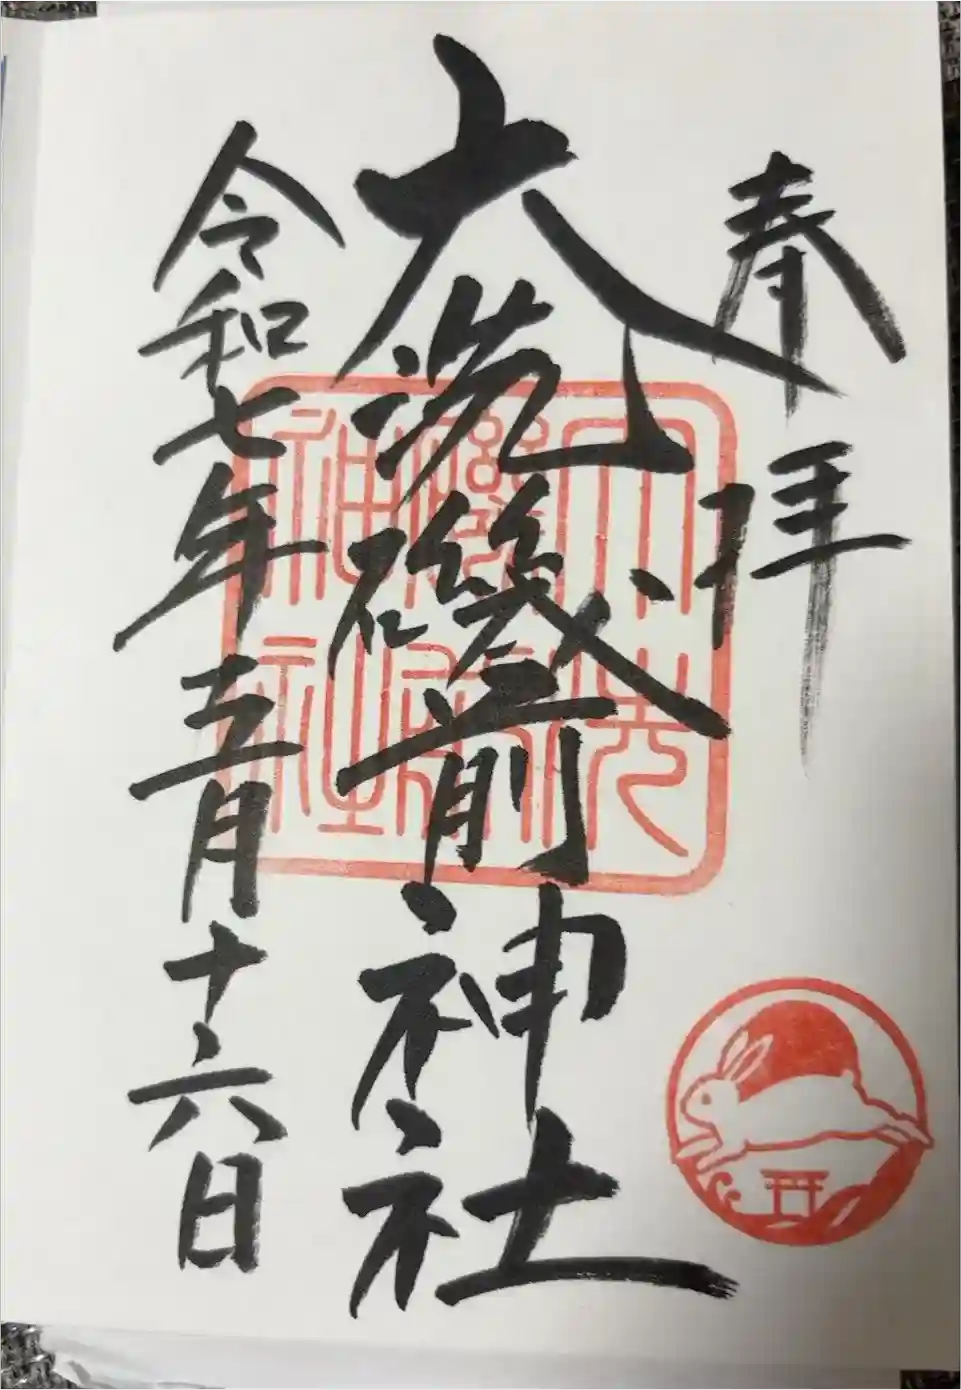 奉拝
大洗磯前神社
令和七年五月十六日
大洗
磯前
神社